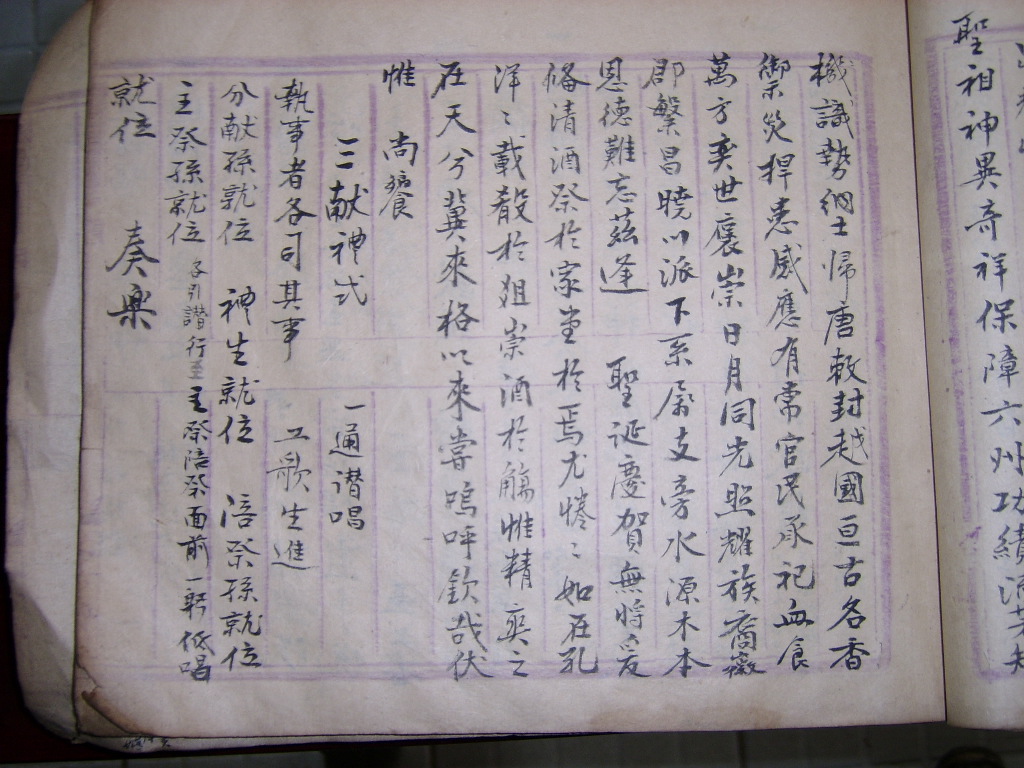 聖祖神異奇祥保障六州功績
機識勢綱土歸唐敕封越國亘古名香
御災捍患感應有常官民承祀血食
萬方奕世褒崇日月同光照耀族裔徽
郡繁昌曉川派下系属支旁水源木本
恩德難忘茲逢 聖誕慶賀無將爰
俻清酒祭於家堂於焉尤惓〻如在孔
洋〻載殽於俎崇酒於觴惟精奭之
在天兮冀來格以來嘗嗚呼欽哉伏
惟 尚饗
三献禮式 一通譛唱
執事者各司其事 工歌生進
分献孫就位 禮生就位 陪祭孫就位
主祭孫就位 子引譛行至主祭陪祭面前一躬低唱
就位 奏樂